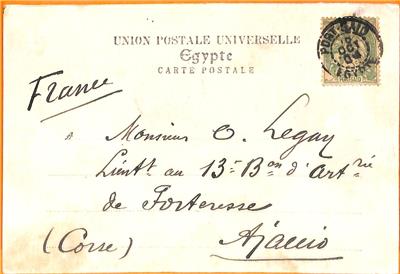 UNION POSTALE UNIVERSELLE
Egypte
CARTE POSTALE
PORT-SAID
France
a Monsieur O. Legay
Lieutt. au 13e Bon d'Artrie
de Forteresse
(Corse) Ajaccio